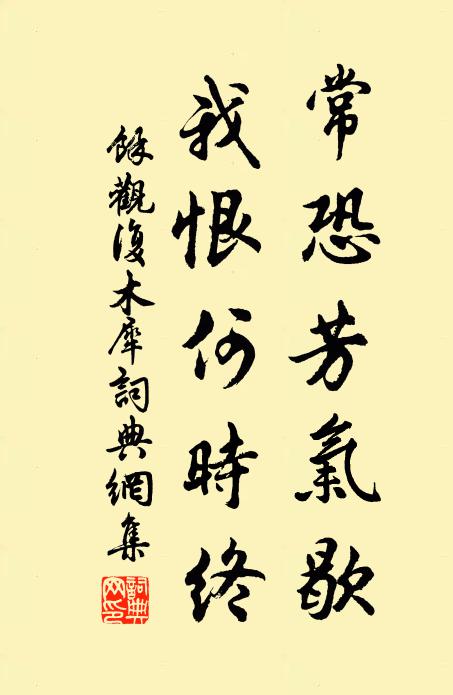 常恐芳氣歇
我恨何時終
餘觀復木犀詞典網集
詞典網印